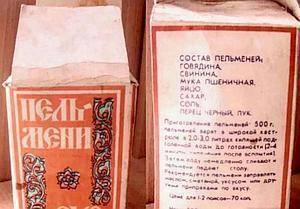 ПЕЛЬ-
МЕНИ
СОСТАВ ПЕЛЬМЕНЕЙ:
ГОВЯДИНА,
СВИНИНА,
МУКА ПШЕНИЧНАЯ,
ЯЙЦО,
САХАР,
СОЛЬ,
ПЕРЕЦ ЧЕРНЫЙ, ЛУК.
Приготовление пельменей: 500 г.
пельменей варят в широкой каст-
рюле в 2,0-3,0 литрах кипящей под-
соленной воды до готовности (2-4
минуты кипения после всплытия).
Затем воду немедленно сливают и
пельмени подает столу.
Рекомендуется пельмени заправлять
маслом, сметаной, уксусом или дру-
гими приправами по вкусу.
Цена для 1-2 поясов-70 коп.